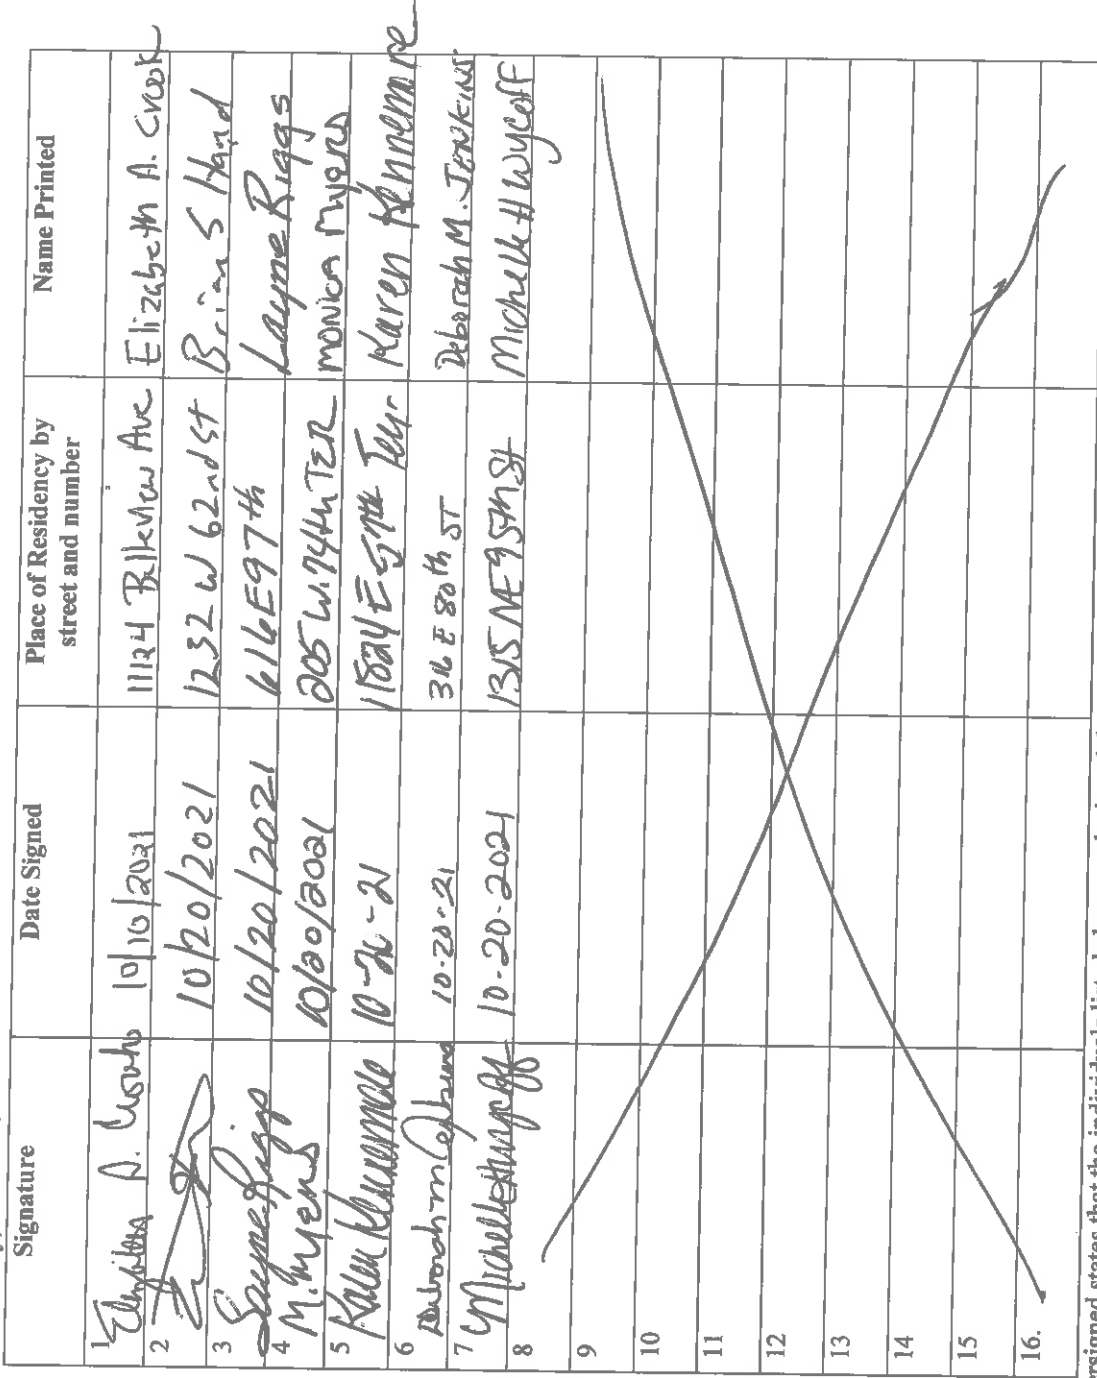 Signature Date Signed Place of Residency by street and number Name Printed
1 Elizabeth A. 10/10/2021 11124 Belleview Ave Elizabeth A. Crook
2 10/20/2021 1232 W 62nd St Brian S Hand
3 Layne Riggs 10/20/2021 616 E 97th Layne Riggs
4 M. Myers 10/20/2021 205 W. 74th TER Monica Myers
5 Karen Kennemore 10-20-21 11824 E Terr Karen Kennemore
6 Deborah M Jenkins 10-20-21 316 E 80th ST Deborah M. Jenkins
7 Michelle H Wycoff 10-20-2021 1315 NE 95th St Michelle H Wycoff
8
9
10
11
12
13
14
15
16.
signed states that the individuals listed above